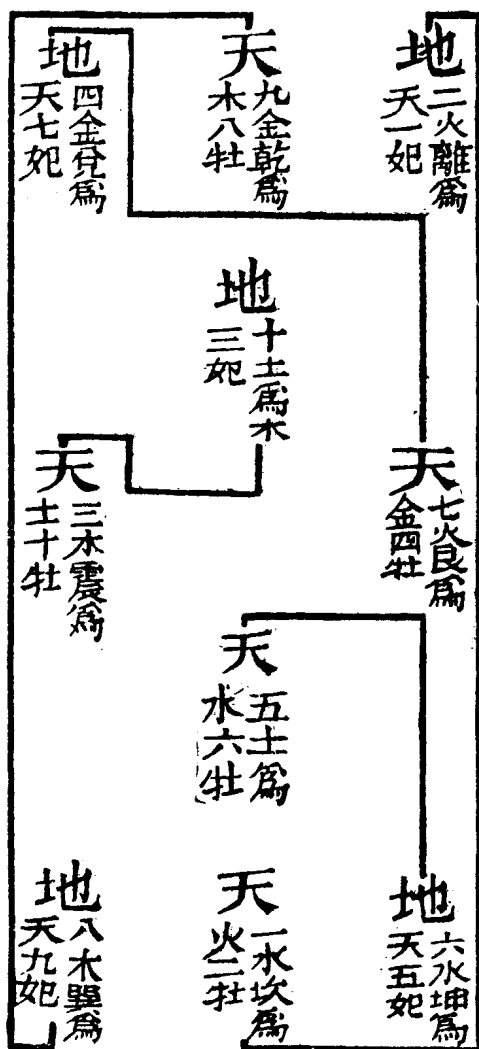 地
二火離爲
天一妃
天
九金乾爲
木八牡
地
四金兌爲
天七妃
地
十土爲木
三妃
天
七火艮爲
金四牡
天
三木震爲
土十牡
天
五土爲
水六牡
地
六水坤爲
天五妃
天
一水坎爲
火二牡
地
八木巽爲
天九妃